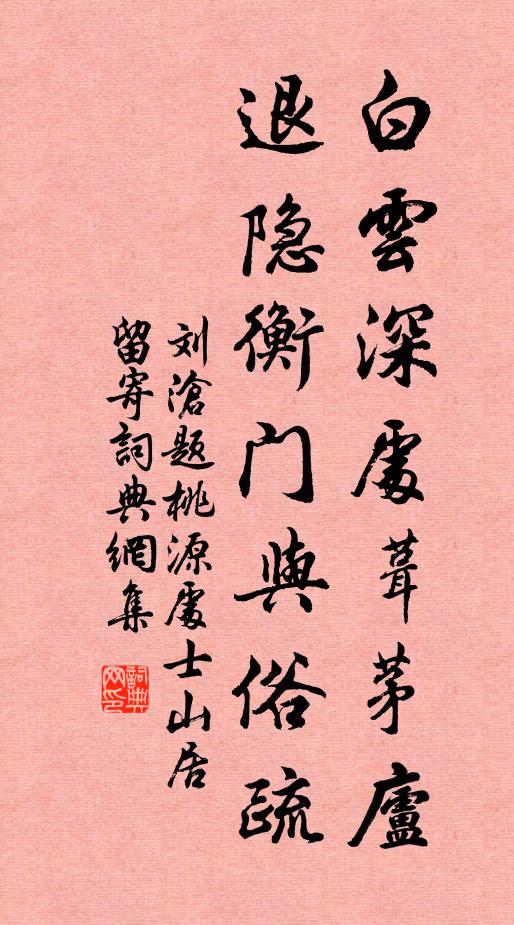 白雲深處葺茅廬
退隐衡门與俗疏
刘滄題桃源處士山居
留寄詞典網集
詞典网印